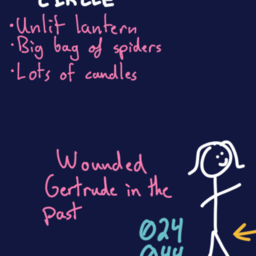 CIRCLE
• Unlit lantern
• Big bag of spiders
• Lots of candles
Wounded
Gertrude in the
past
024
044